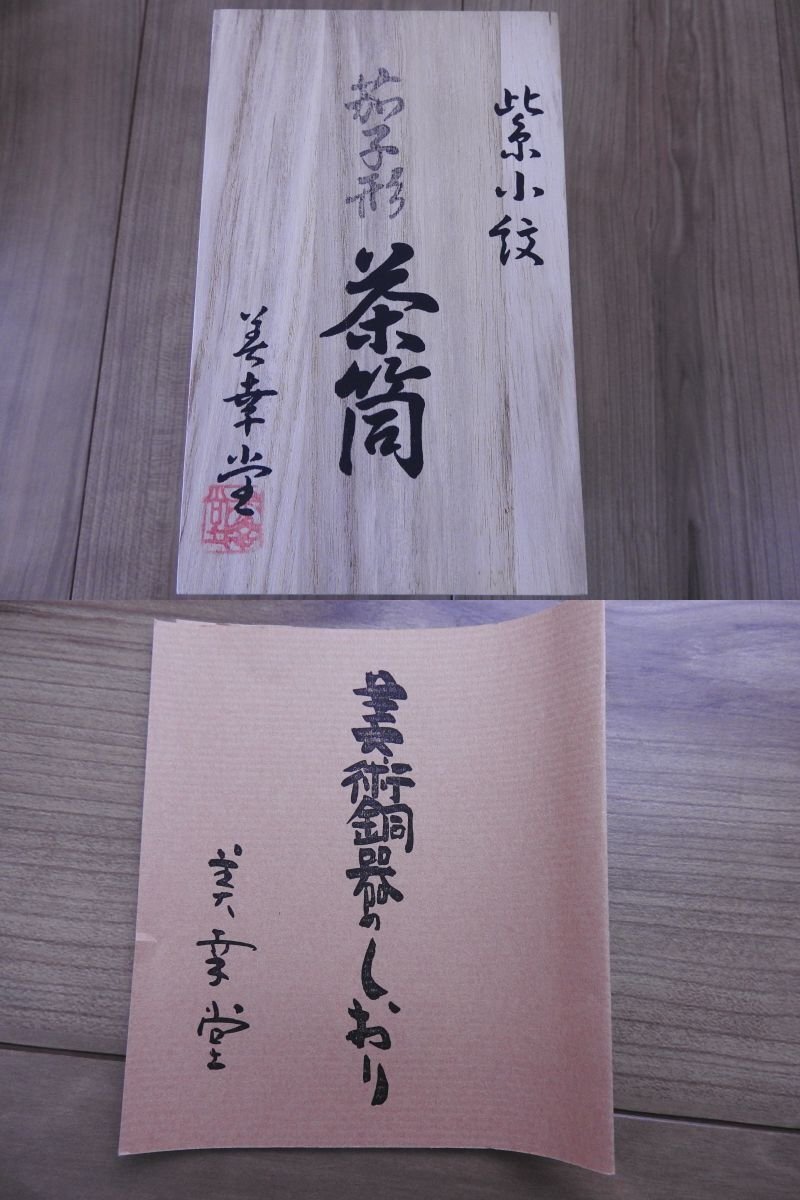 紫小紋
茄子形
茶筒
美幸堂
美術銅器のしおり
美幸堂